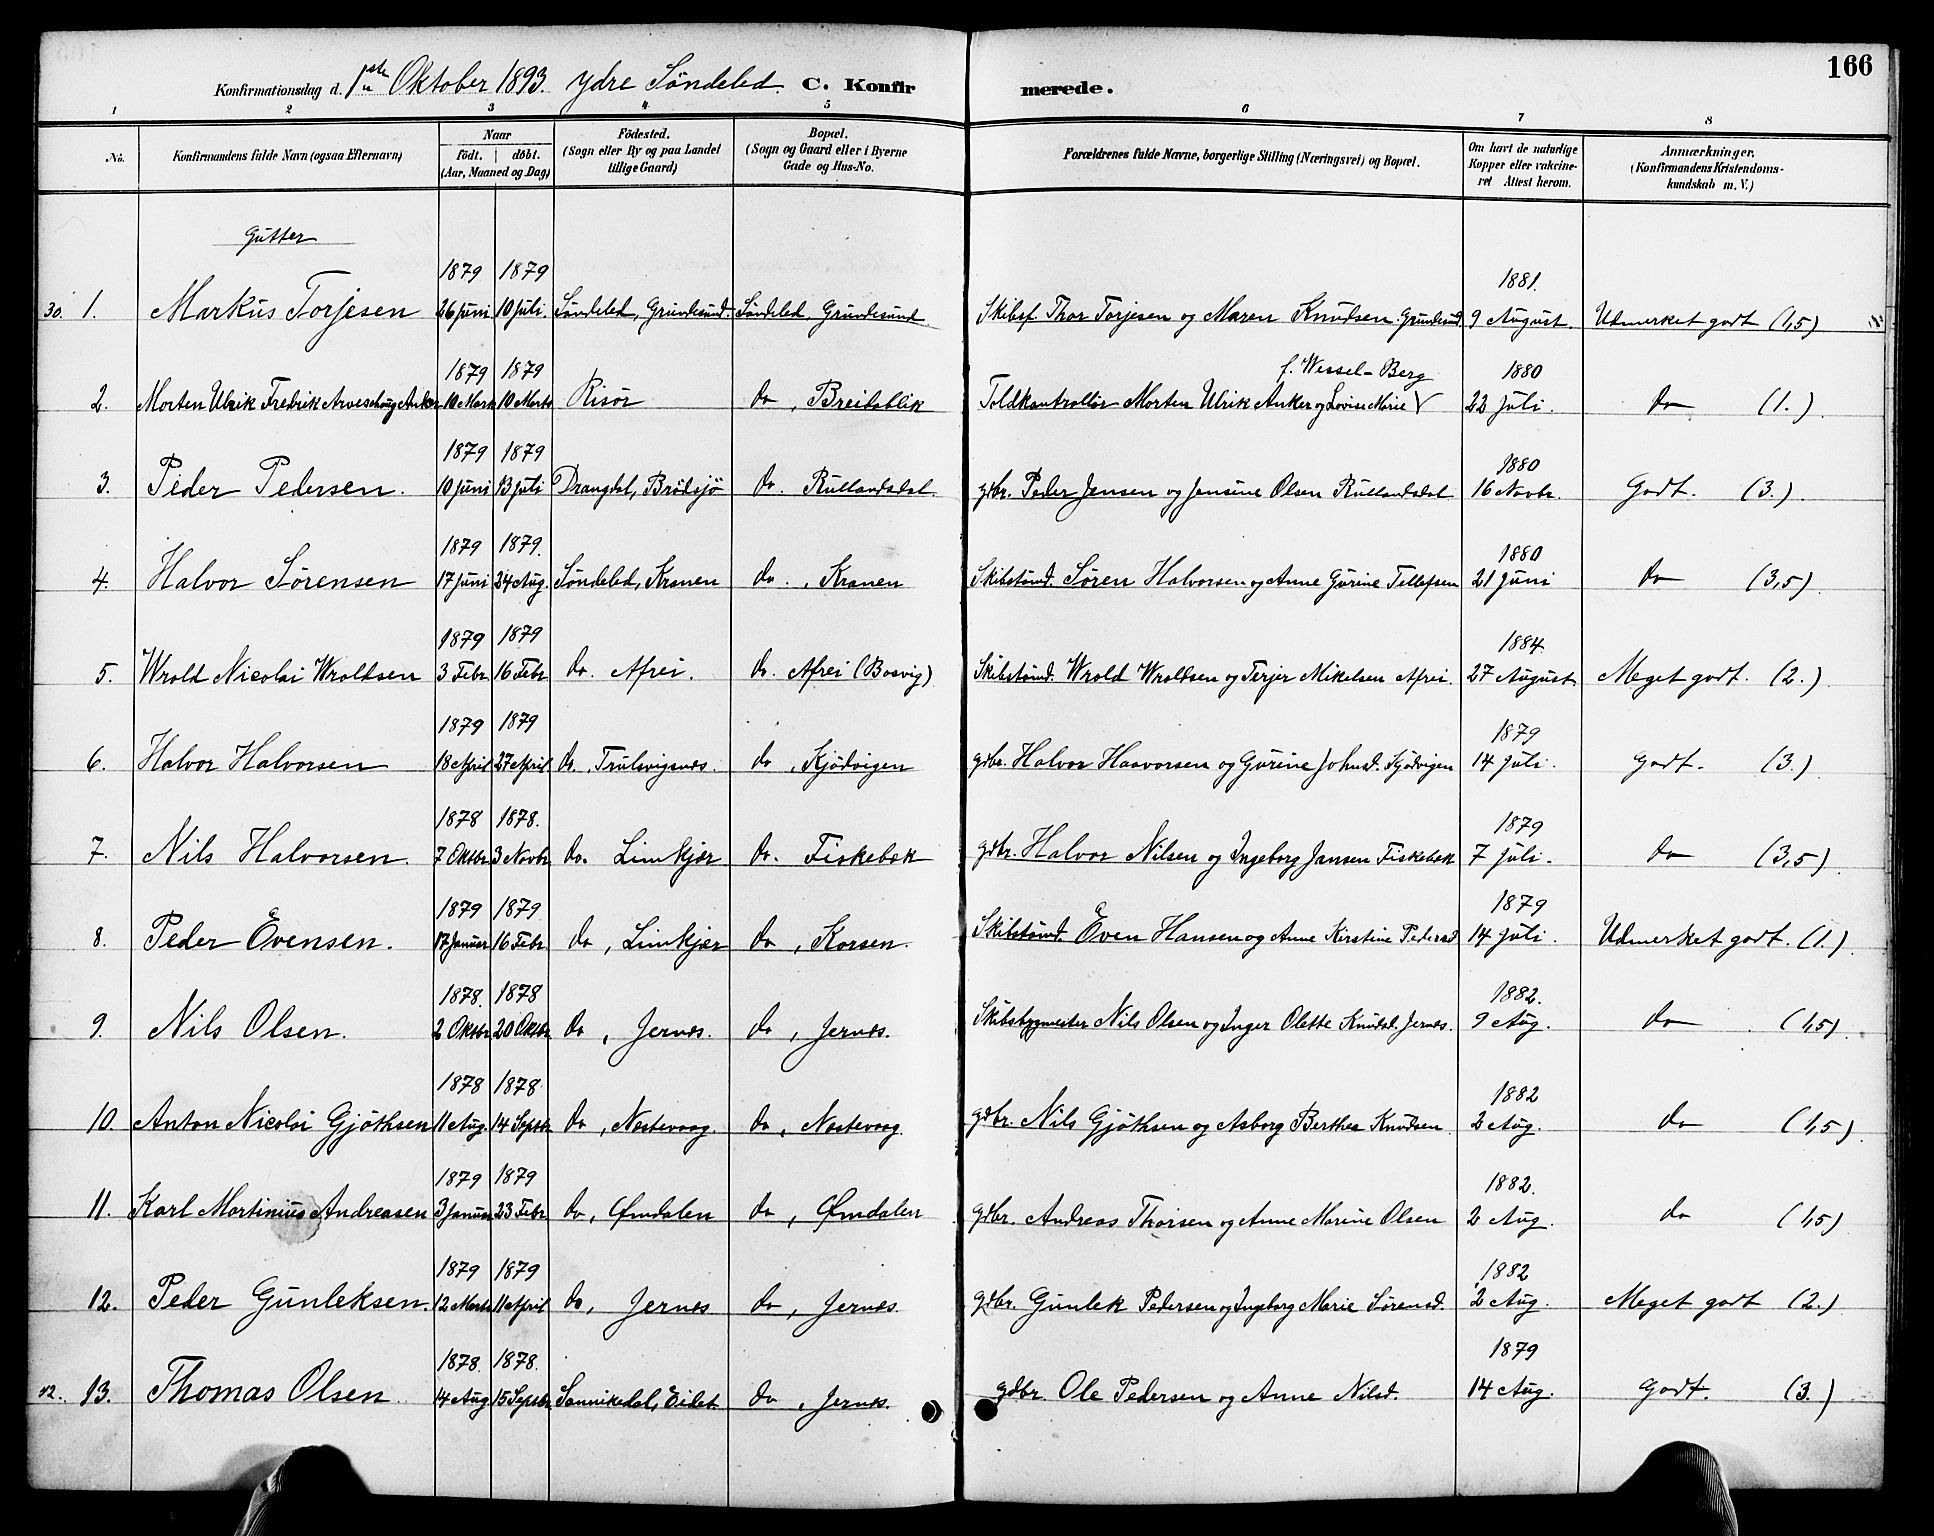 166
Konfirmationsdag d. 1ste Oktober 1893. Ydre Søndeled. C. Konfirmerede.
1 2 3 4 5 6 7 8
No. | Konfirmandens fulde Navn (ogsaa Efternavn) | Naar født. | døbt. (Aar, Maaned og Dag) | Födested. (Sogn eller By og paa Landet tillige Gaard) | Bopæl. (Sogn og Gaard eller i Byerne Gade og Hus-No. | Forældrenes fulde Navne, borgerlige Stilling (Næringsvei) og Bopæl. | Om havt de naturlige Kopper eller vakcineret Attest herom. | Anmærkninger. (Konfirmandens Kristendomskundskab m. V.)
Gutter
1879 1879 1881.
30. 1. Markus Torjesen 26 Juni 10 Juli. Søndeled, Grundesund. Søndeled, Grundesund. Skibsf. Thor Torjesen og Maren Knudsen Grundesund 9 August. Udmerket godt (1,5)
1879 1879 f. Wessel-Berg 1880
2. Morten Ulrik Fredrik Anker 10 Marts 10 Marts Risør do, Breidablik Toldkontrollør Morten Ulrik Anker og Lovise Marie 22 Juli. do (1.)
1879 1879 1880
3. Peder Pedersen. 10 Juni 13 Juli Drangdal, Brødsjø do. Rullandsdal. gdbr. Peder Jensen og Jensine Olsen Rullandsdal 16 Novbr. Godt. (3.)
1879 1879. 1880
4. Halvor Sørensen 17 Juni 24 Aug. Søndeled, Kranen do. , Kranen Skibstømd. Søren Halvorsen og Anne Gurine Tellefsen 21 Juni do (3,5)
1879 1879 1884.
5. Wrold Nicolai Wroldsen 3 Febr. 16 Febr. do. Afrei. do. Afrei (Bosvig) Skibstømd. Wrold Wroldsen og Terjer Mikelsen Afrei. 27 August. Meget godt. (2.)
1879 1879 1879
6. Halvor Halvorsen 18 April 27 April do, Trulsvignes. do, Kjødvigen gdbr. Halvor Haavorsen og Gurine Johnsd. Kjødvigen 14 Juli. Godt. (3.)
1878 1878. 1879
7. Nils Halvorsen. 7 Oktbr. 3 Novbr. do. Limkjær do. Fiskebæk gdbr. Halvor Nilsen og Ingeborg Jansen Fiskebæk 7 Juli. do (3,5)
1879 1879 1879
8. Peder Evensen. 17 Januar 16 Febr. do, Limkjær do, Korsen. Skibstømd. Even Hansen og Anne Kirstine Pedersd. 14 Juli. Udmerket godt. (1.)
1878. 1878 1882.
9. Nils Olsen. 2 Oktbr. 20 Oktbr. do, Jernes. do, Jernes. Skibsbygmester Nils Olsen og Inger Olette Knudsd. Jernes. 9 Aug. do (1,5)
1878 1878 1882
10. Anton Nicolai Gjøthsen 11 Aug. 14 Septbr. do, Nostevaag. do, Nostevaag. gdbr. Nils Gjøthsen og Asborg Berthea Knudsen 2 Aug. do (1,5)
1879 1879 1882.
11. Karl Martinius Andreasen 3 Januar 23 Febr. do, Ømdalen do, Ømdalen gdbr. Andreas Thorsen og Anne Marine Olsen 2 Aug. do (1,5)
1879 1879 1882
12. Peder Gunleksen. 12 Marts 11 April do, Jernes do, Jernes. gdbr. Gunlek Pedersen og Ingeborg Marie Sørensd. 2 Aug. Meget godt (2.)
1878. 1878. 1879
13. Thomas Olsen. 14 Aug 15 Septbr. Sannikedal, Eidet do, Jernes. gdbr. Ole Pedersen og Anne Nilsd. 14 Aug. Godt. (3.)